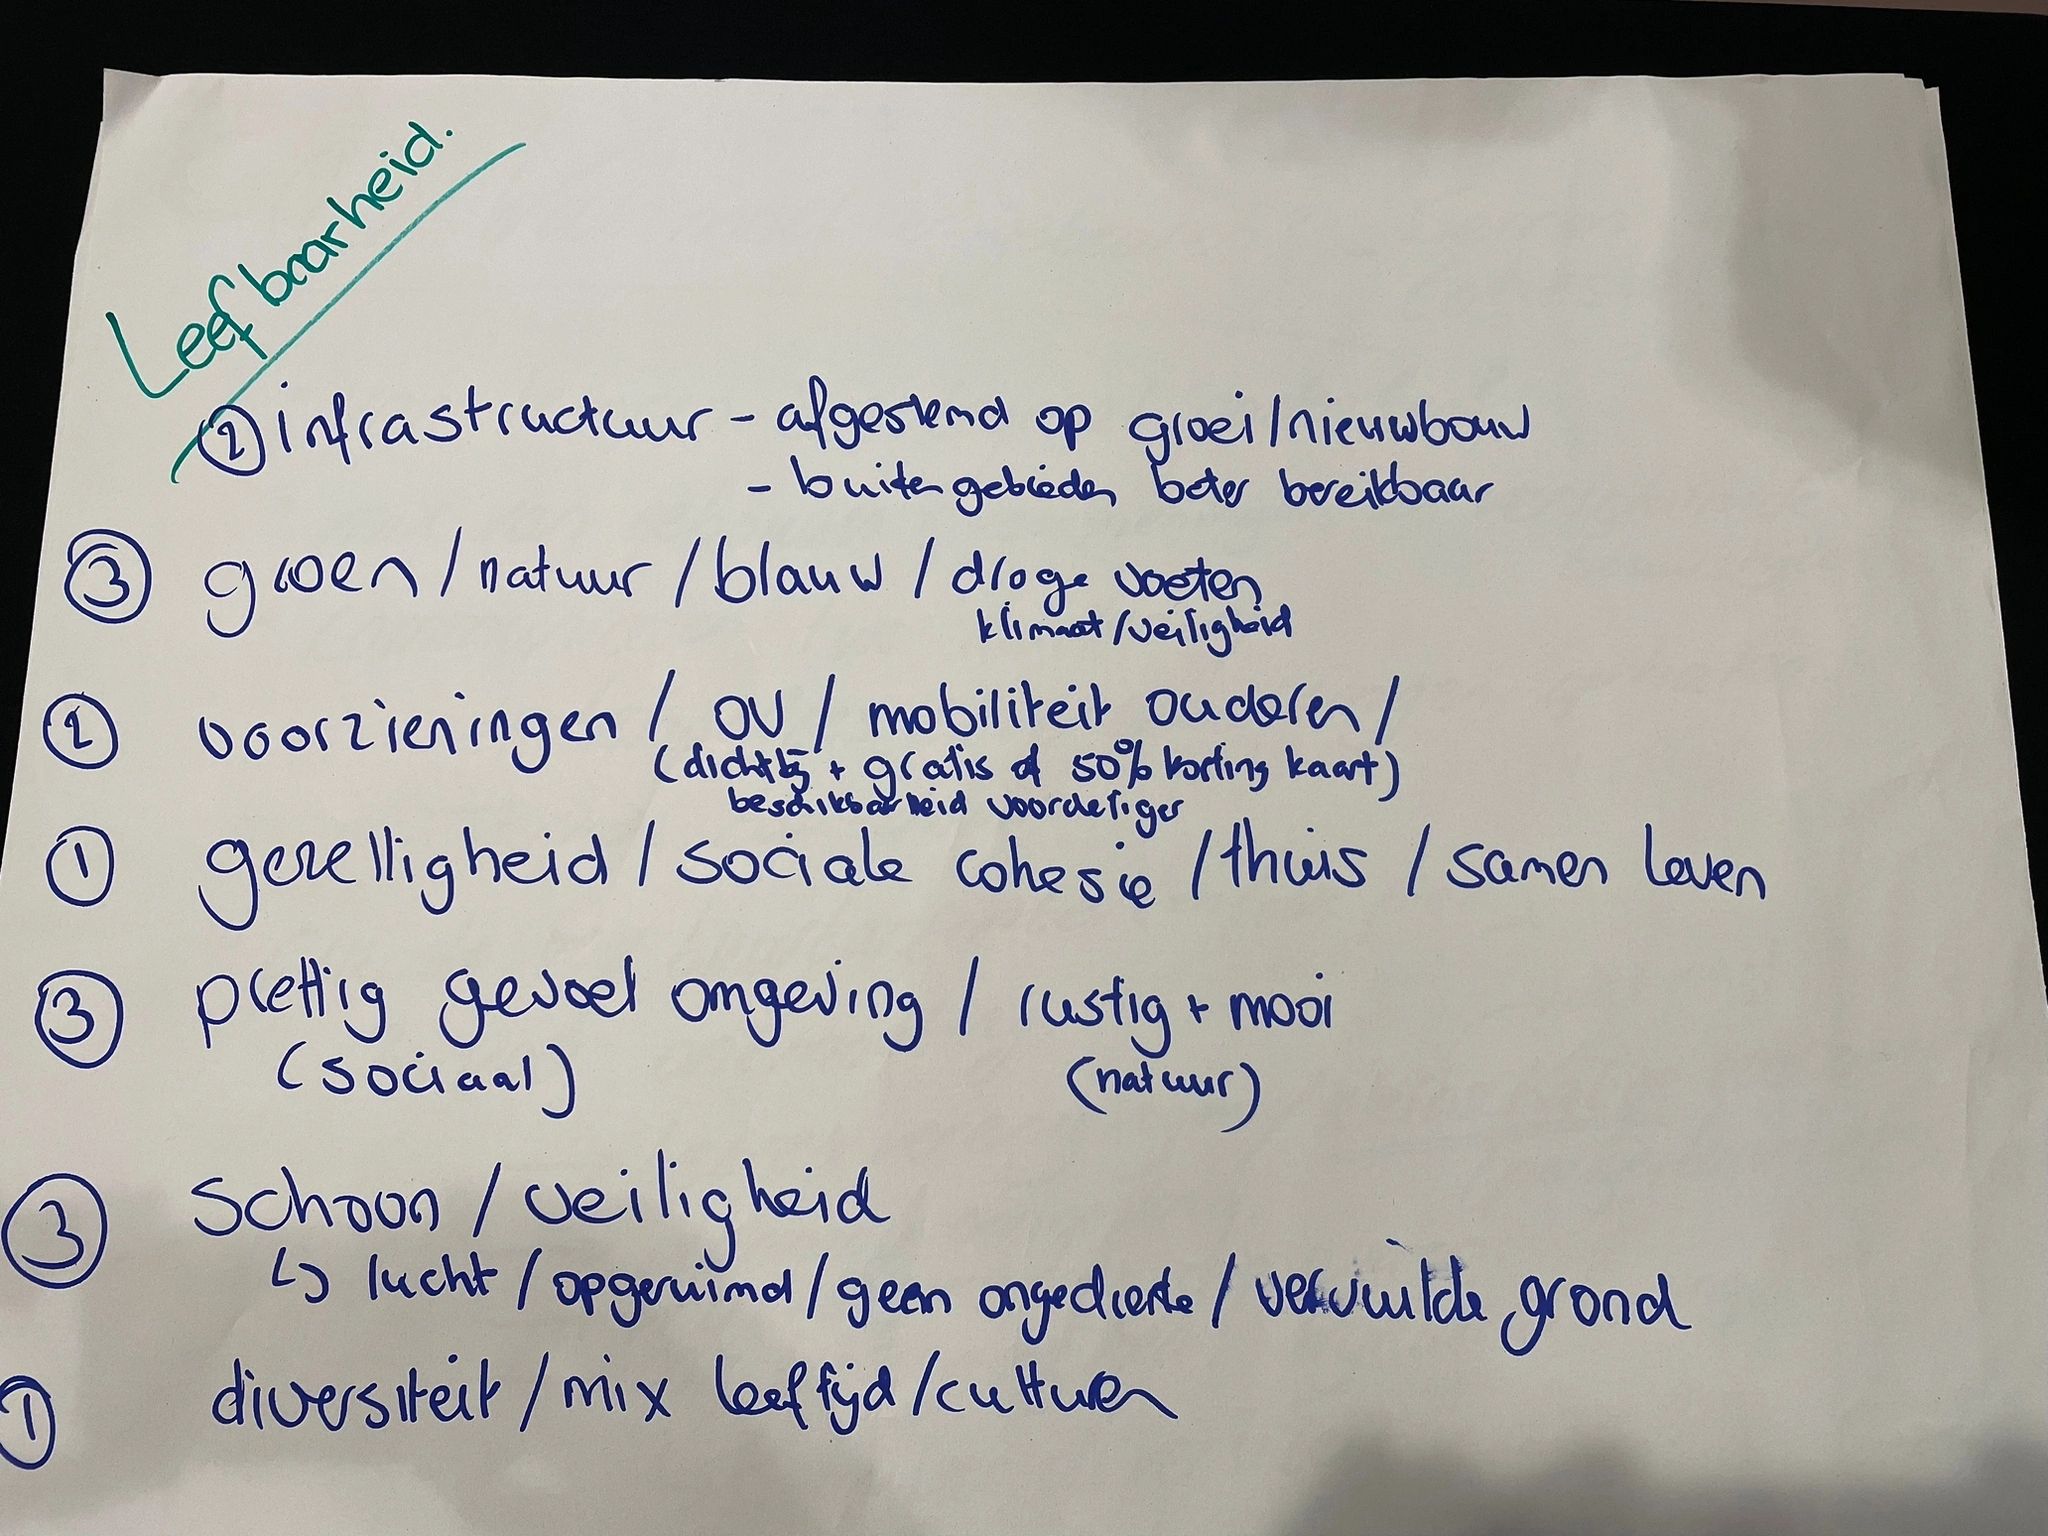 Leefbaarheid.
② infrastructuur - afgestemd op groei/nieuwbouw
- buitengebieden beter bereikbaar
③ groen / natuur / blauw / droge voeten
klimaat/veiligheid
② voorzieningen / OV / mobiliteit ouderen /
(dichtbij + gratis of 50% korting kaart)
beschikbaarheid voordeliger
① gezelligheid / sociale cohesie / thuis / samen leven
③ prettig gevoel omgeving / rustig + mooi
(sociaal) (natuur)
③ schoon / veiligheid
↳ lucht / opgeruimd / geen ongedierte / vervuilde grond
① diversiteit / mix leeftijd / culturen